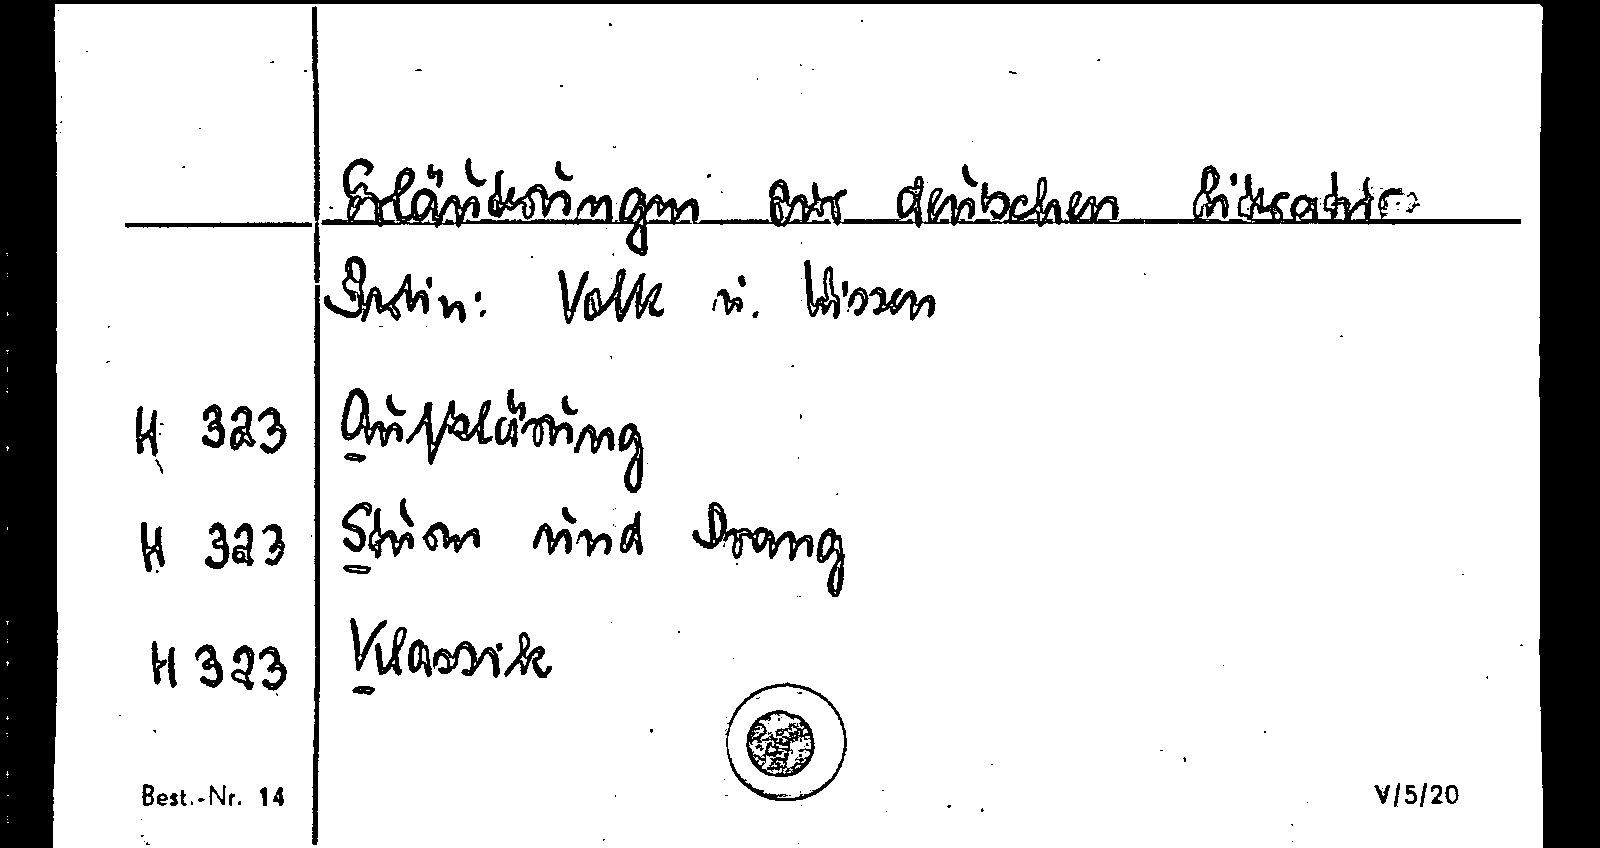 Erläuterungen zur deutschen Literatur
Berlin: Volk u. Wissen
H 323 Aufklärung
H 323 Sturm und Drang
H 323 Klassik
Best.-Nr. 14 V/5/20